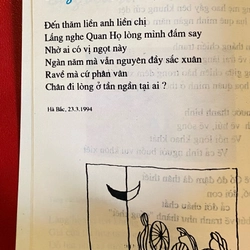 Đến thăm liền anh liền chị
Lắng nghe Quan Họ lòng mình đắm say
Nhờ ai có vị ngọt này
Ngàn năm mà vẫn nguyên đầy sắc xuân
Ravé mà cứ phân vân
Chân đi lòng ở tần ngần tại ai ?
Hà Bắc, 23.3.1994